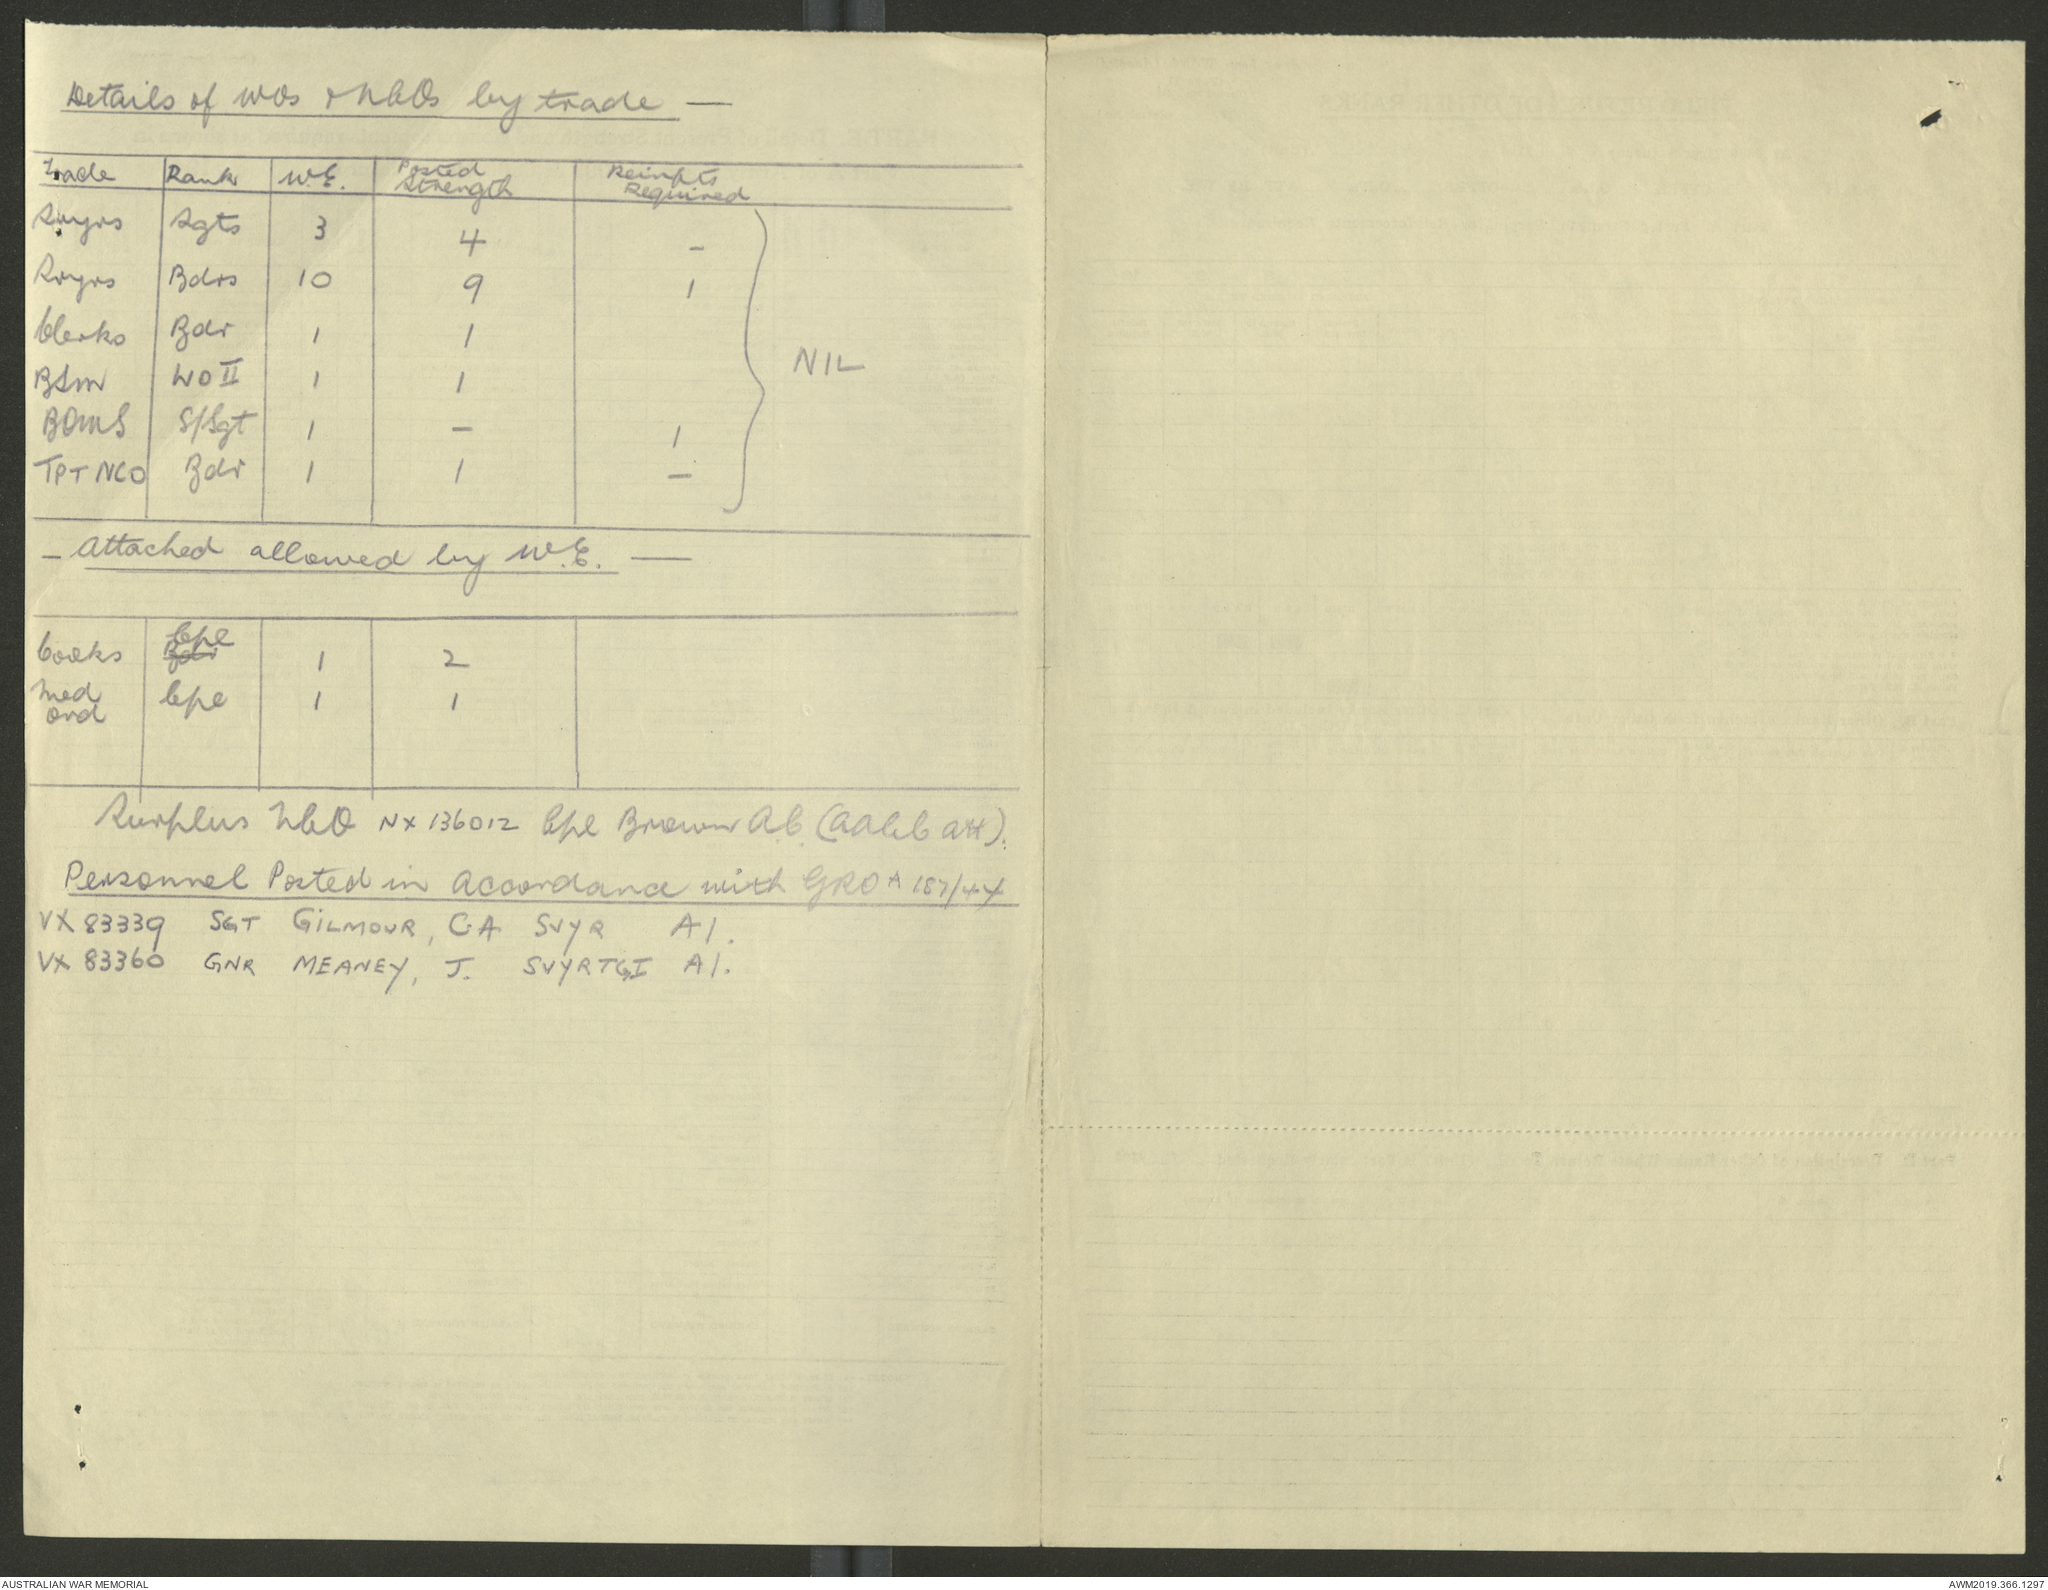 Details of WOs & NCOs by trade —
Trade Rank W.E. Posted Strength Reinfts Required
Svyrs Sgts 3 4 –
Svyrs Bdrs 10 9 1
Clerks Bdr 1 1
BSM WO II 1 1
NIL
BQMS S/Sgt 1 – 1
TPT NCO Bdr 1 1 –
– Attached allowed by W.E. —
Cooks Bdr Cpl 1 2
Med Ord Cpl 1 1
Surplus NCO NX 136012 Cpl Brown A.C. (AACC att).
Personnel Posted in Accordance with GRO A 187/44
VX 83339 SGT GILMOUR, CA SVYR A1.
VX 83360 GNR MEANEY, J. SVYRTGI A1.
AUSTRALIAN WAR MEMORIAL
AWM2019.366.1297